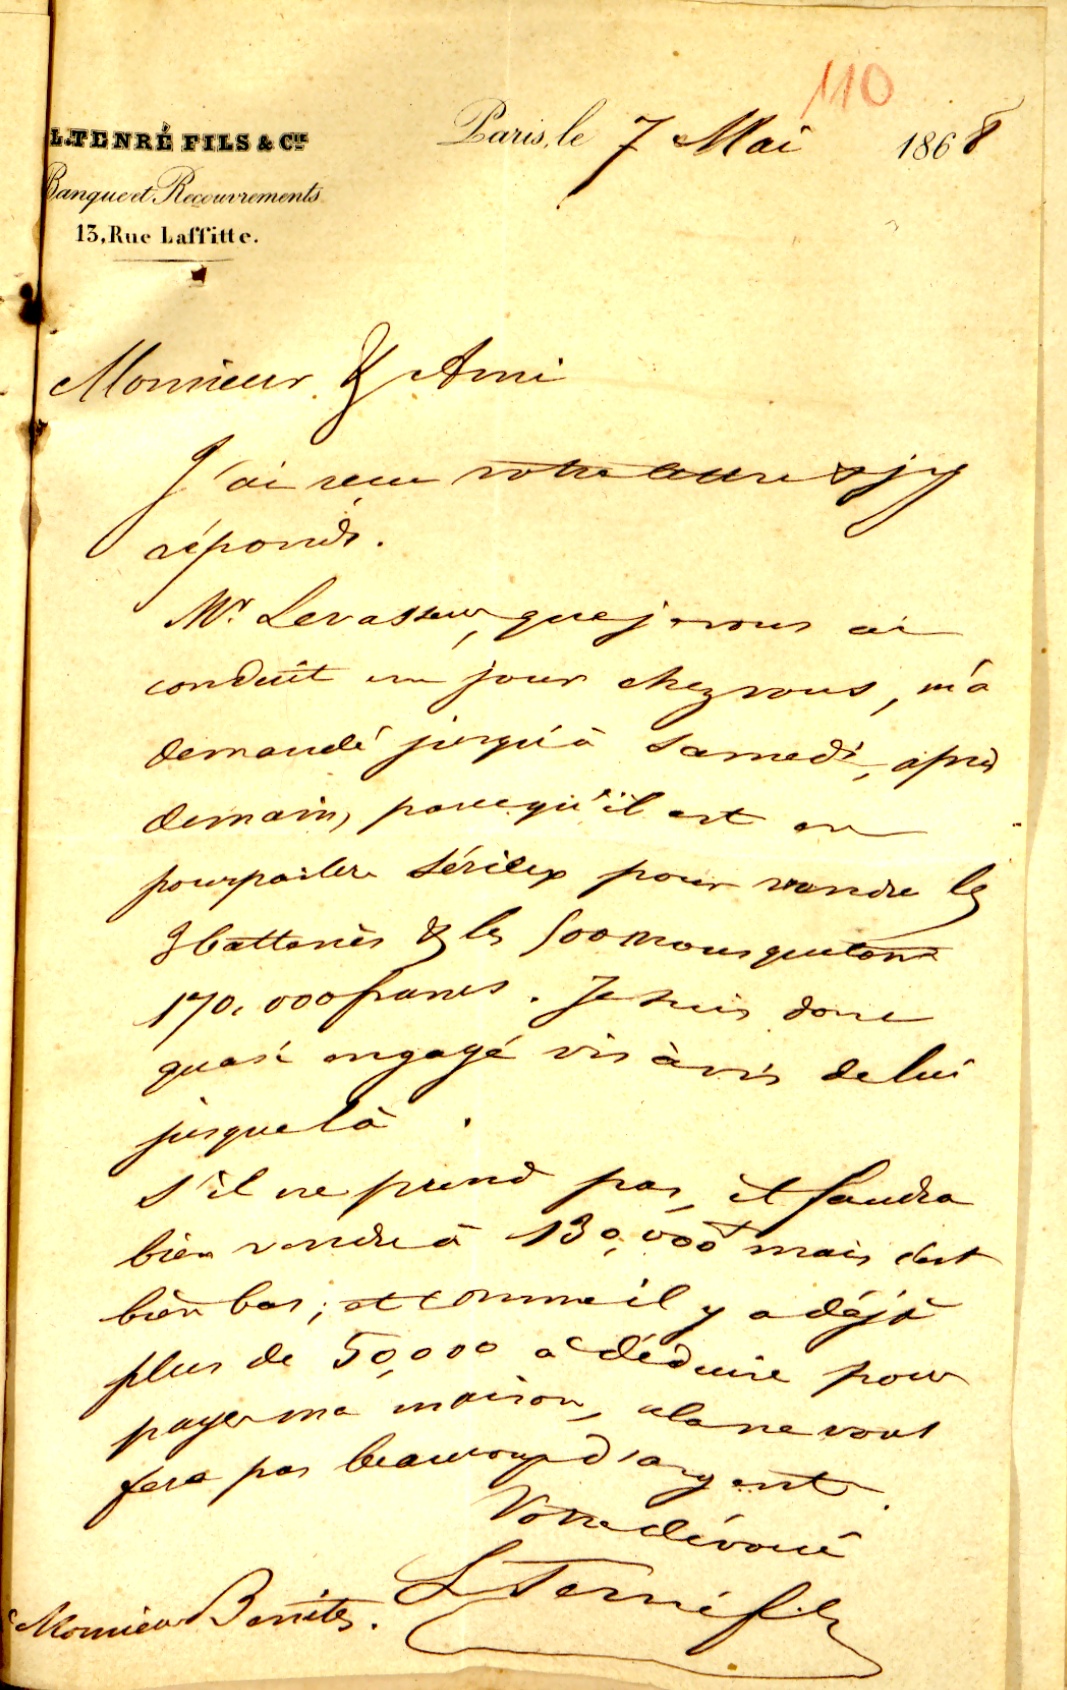 110
L. TENRÉ FILS & CIE
Banque et Recouvrements
13, Rue Laffitte.
Paris, le 7 Mai 1868
Monsieur & Ami
J'ai reçu votre lettre & j'y
réponds.
Mr. Levasseur, que je vous ai
conduit un jour chez vous, m'a
demandé jusqu'à Samedi, après
demain, parcequ'il est en
pourparlers sérieux pour vendre les
batteries & les 500 mousquetons
170,000 francs. Je suis donc
quasi engagé vis à vis de lui
jusque là.
S'il ne prend pas, il faudra
bien vendre à 130,000 mais c'est
bien bas; et comme il y a déjà
plus de 50,000 à déduire pour
payer ma maison, cela ne vous
fera pas beaucoup d'argent.
Votre dévoué
L Tenré fils
Monsieur Benites.